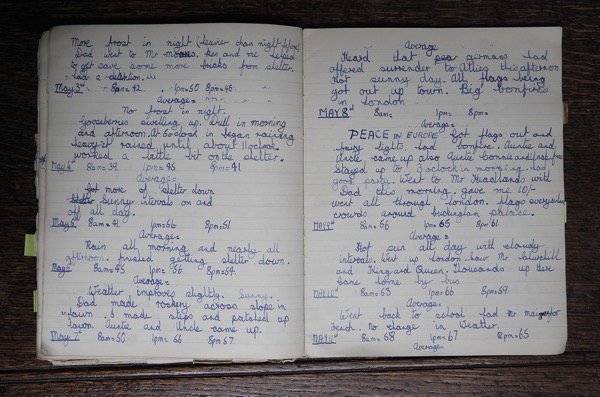 More frost in night (heavier than night before)
Dad went to Mr Ken and me helped
to get save some more bricks from shelter.
Had a
May 3rd 8am=42. 1pm=50 8pm=46
Average=
No frost in night.
Gooseberries swelling up. Dull in morning
and afternoon. At 6 oclock it began raining
heavily rained until about 11 oclock.
worked a little bit on the shelter.
May 8am=39. 1pm=46 8pm=41
Average=
Got more of shelter down
Sunny intervals on and
off all day.
May 8am=41. 1pm=66 8pm=51
Average=
Rain all morning and nearly all
afternoon. finished getting shelter down.
May 8am=45 1pm=56 8pm=54
Average=
Weather improves slightly. Sunny.
Dad made rockery across slope in
lawn. I made steps and patched up
lawn. Auntie and Uncle came up.
May 7th 8am=50 1pm=66 8pm=67.
Average
Heard that germans had
offered surrender to Allies this afternoon
Hot sunny day. All flags being
got out up town. Big bonfires
in London
MAY 8th 8am= 1pm= 8pm=
Average=
PEACE IN EUROPE Got flags out and
fairy lights, had bonfire. Auntie and
Uncle came up also Auntie Connie and
Stayed up to 3 oclock in morning. had
good party. Went to Mr Headlands with
Dad this morning. gave me 10/-
went all through London. flags everywhere
crowds around buckingham palace.
MAY 8am=56 1pm=65 8pm=61
Average=
Hot sun all day with cloudy
intervals. Went up London. saw Mr Churchill
and King and Queen. Thousands up there
Came home by bus.
MAY 10th 8am=63 1pm=66 8pm=59.
Average.
Went back to school had Mr for
No change in Weather.
MAY 11th 8am=58 1pm=67 8pm=65
Average